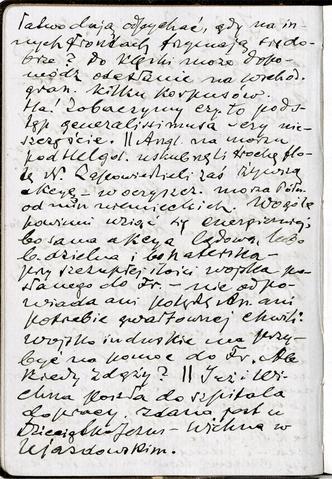 łatwo dają odpychać, gdy na in-
nych frontach trzymają się do-
brze? Do klęski może dopo-
módz odesłanie na wschód.
gran. kilku korpusów.
Ha! Zobaczymy czy to pods-
tęp generalissimusa czy nie-
szczęście. || Angl. na morzu
pod Helgol. uskubnęli trochę flo-
tę N. Zapowiedzieli zaś żywszą
akcyę w oczyszcz. morza Półn.
od min niemieckich. Wogóle
powinni wziąć się energiczniej,
bo sama akcya lądowa, lubo
b. dzielna i bohaterska
przy szczupłej ilości wojska po-
słanego do Fr. – nie odpo-
wiada ani potędze An. ani
potrzebie gwałtownej chwili.
Wojsko induskie ma przy-
być na pomoc do Fr. Ale
kiedy zdąży? || Jzi i Wi-
chna poszła do szpitala
do pracy. Zdano, jest u
Dzieciątka Jezus – Wichna w
Ujazdowskim.